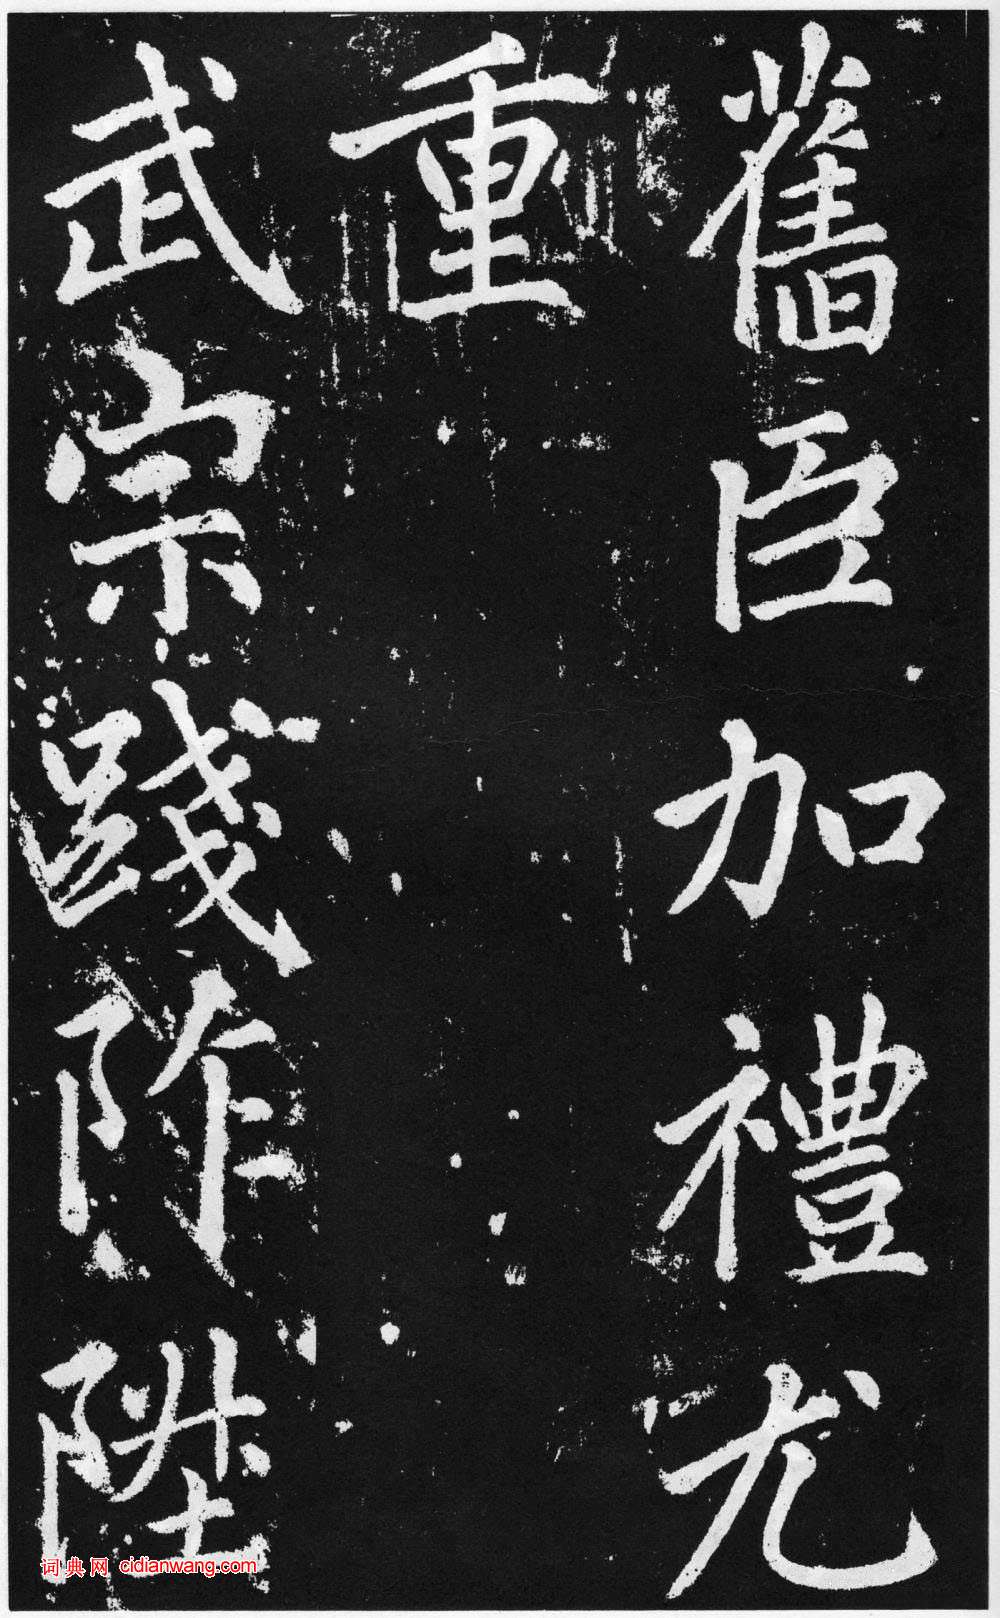 舊臣加禮尤
重
武宗踐阼陞
词典网 cidianwang.com